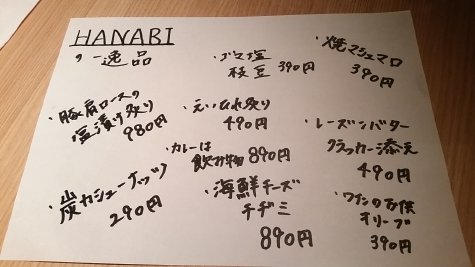 HANABI
の一逸品
・ゴマ塩
枝豆 390円
・焼マシュマロ
390円
・豚肩ロースの
塩漬け炙り
980円
・えいひれ炙り
490円
・レーズンバター
クラッカー添え
490円
・炭カシューナッツ
290円
・カレーは
飲み物 890円
・海鮮チーズ
チヂミ
890円
・ワインのお供
オリーブ
390円